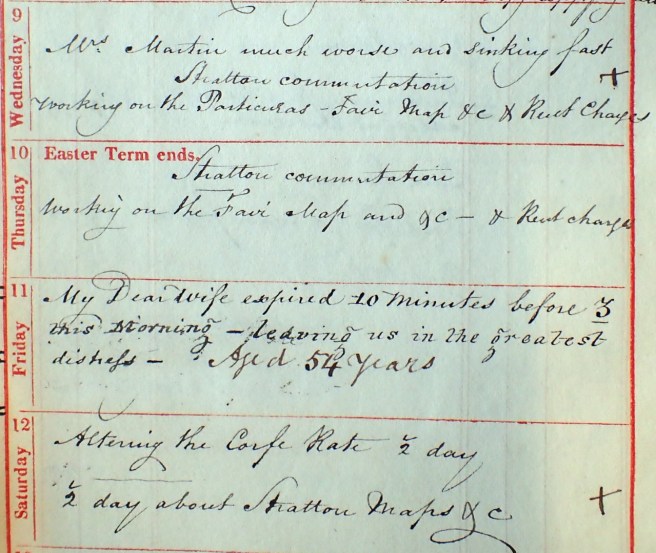 9
Wednesday
Mrs Martin much worse and sinking fast
Stratton commutation
working on the Particuras - Fair Map &c & Rent Charges
10
Thursday
Easter Term ends.
Stratton commutation
working on the Fair Map and &c - & Rent charge
11
Friday
My Dear wife expired 10 minutes before 3
this Morning - leaving us in the greatest
distress - Aged 54 years
12
Saturday
Altering the Corfe Rate ½ day
½ day about Stratton Maps & c